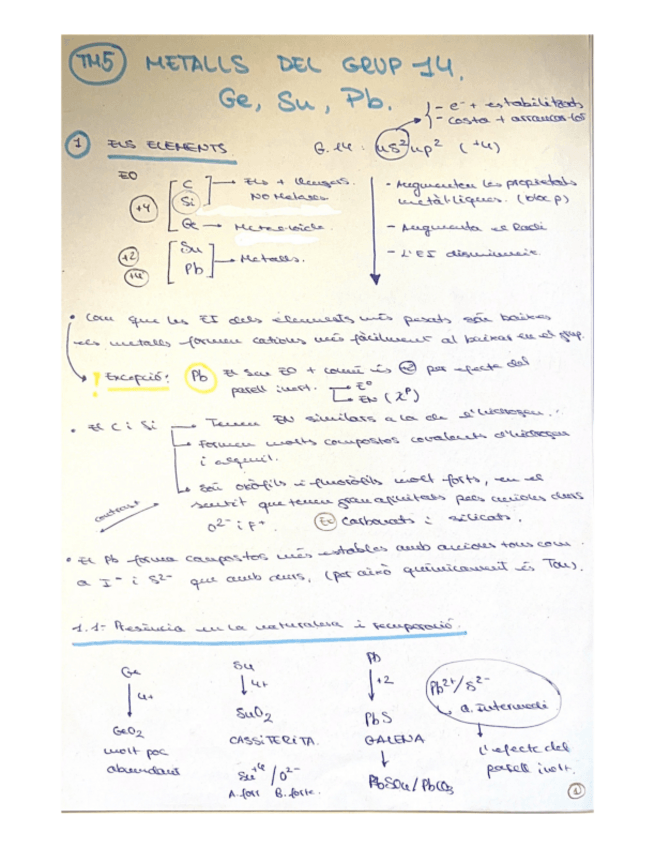 TM5 METALLS DEL GRUP 14.
Ge, Sn, Pb.
- e- + estabilitzats
- costa + arrancar-los
1 ELS ELEMENTS
G.14: ns² np² (+4)
EO
+4
C
Si → Els + lleugers.
NO Metalls.
Ge → Metal·loide.
+2
+4
Sn
Pb → Metalls.
- Augmenten les propietats
metàl·liques. (bloc p)
- Augmenta el Radi
- L'EI disminueix.
• Com que les EI dels elements més pesats són baixes
els metalls formen cations més fàcilment al baixar en el grup.
! Excepció: Pb El seu EO + comú és +2 per efecte del
parell inert. E°
EN (χᴾ)
• El C i Si → Tenen EN similars a la de l'hidrogen.
→ Formen molts compostos covalents d'hidrogen
i alquil.
→ Són oxòfils i fluoròfils molt forts, en el
sentit que tenen gran afinitats pels anions durs
O²⁻ i F⁻. Ex Carbonats i silicats.
contrast
• El Pb forma compostos més estables amb anions tous com
a I⁻ i S²⁻ que amb durs, (per això químicament és Tou).
1.1- Presència en la naturalesa i recuperació.
Ge
4+
GeO2
molt poc
abundant
Sn
4+
SnO2
CASSITERITA.
Sn⁺⁴/O²⁻
A. fort B. forta.
Pb
+2
PbS
GALENA
PbSO4/PbCO3
Pb²⁺/S²⁻
a. Intermedi
l'efecte del
parell inert.
1